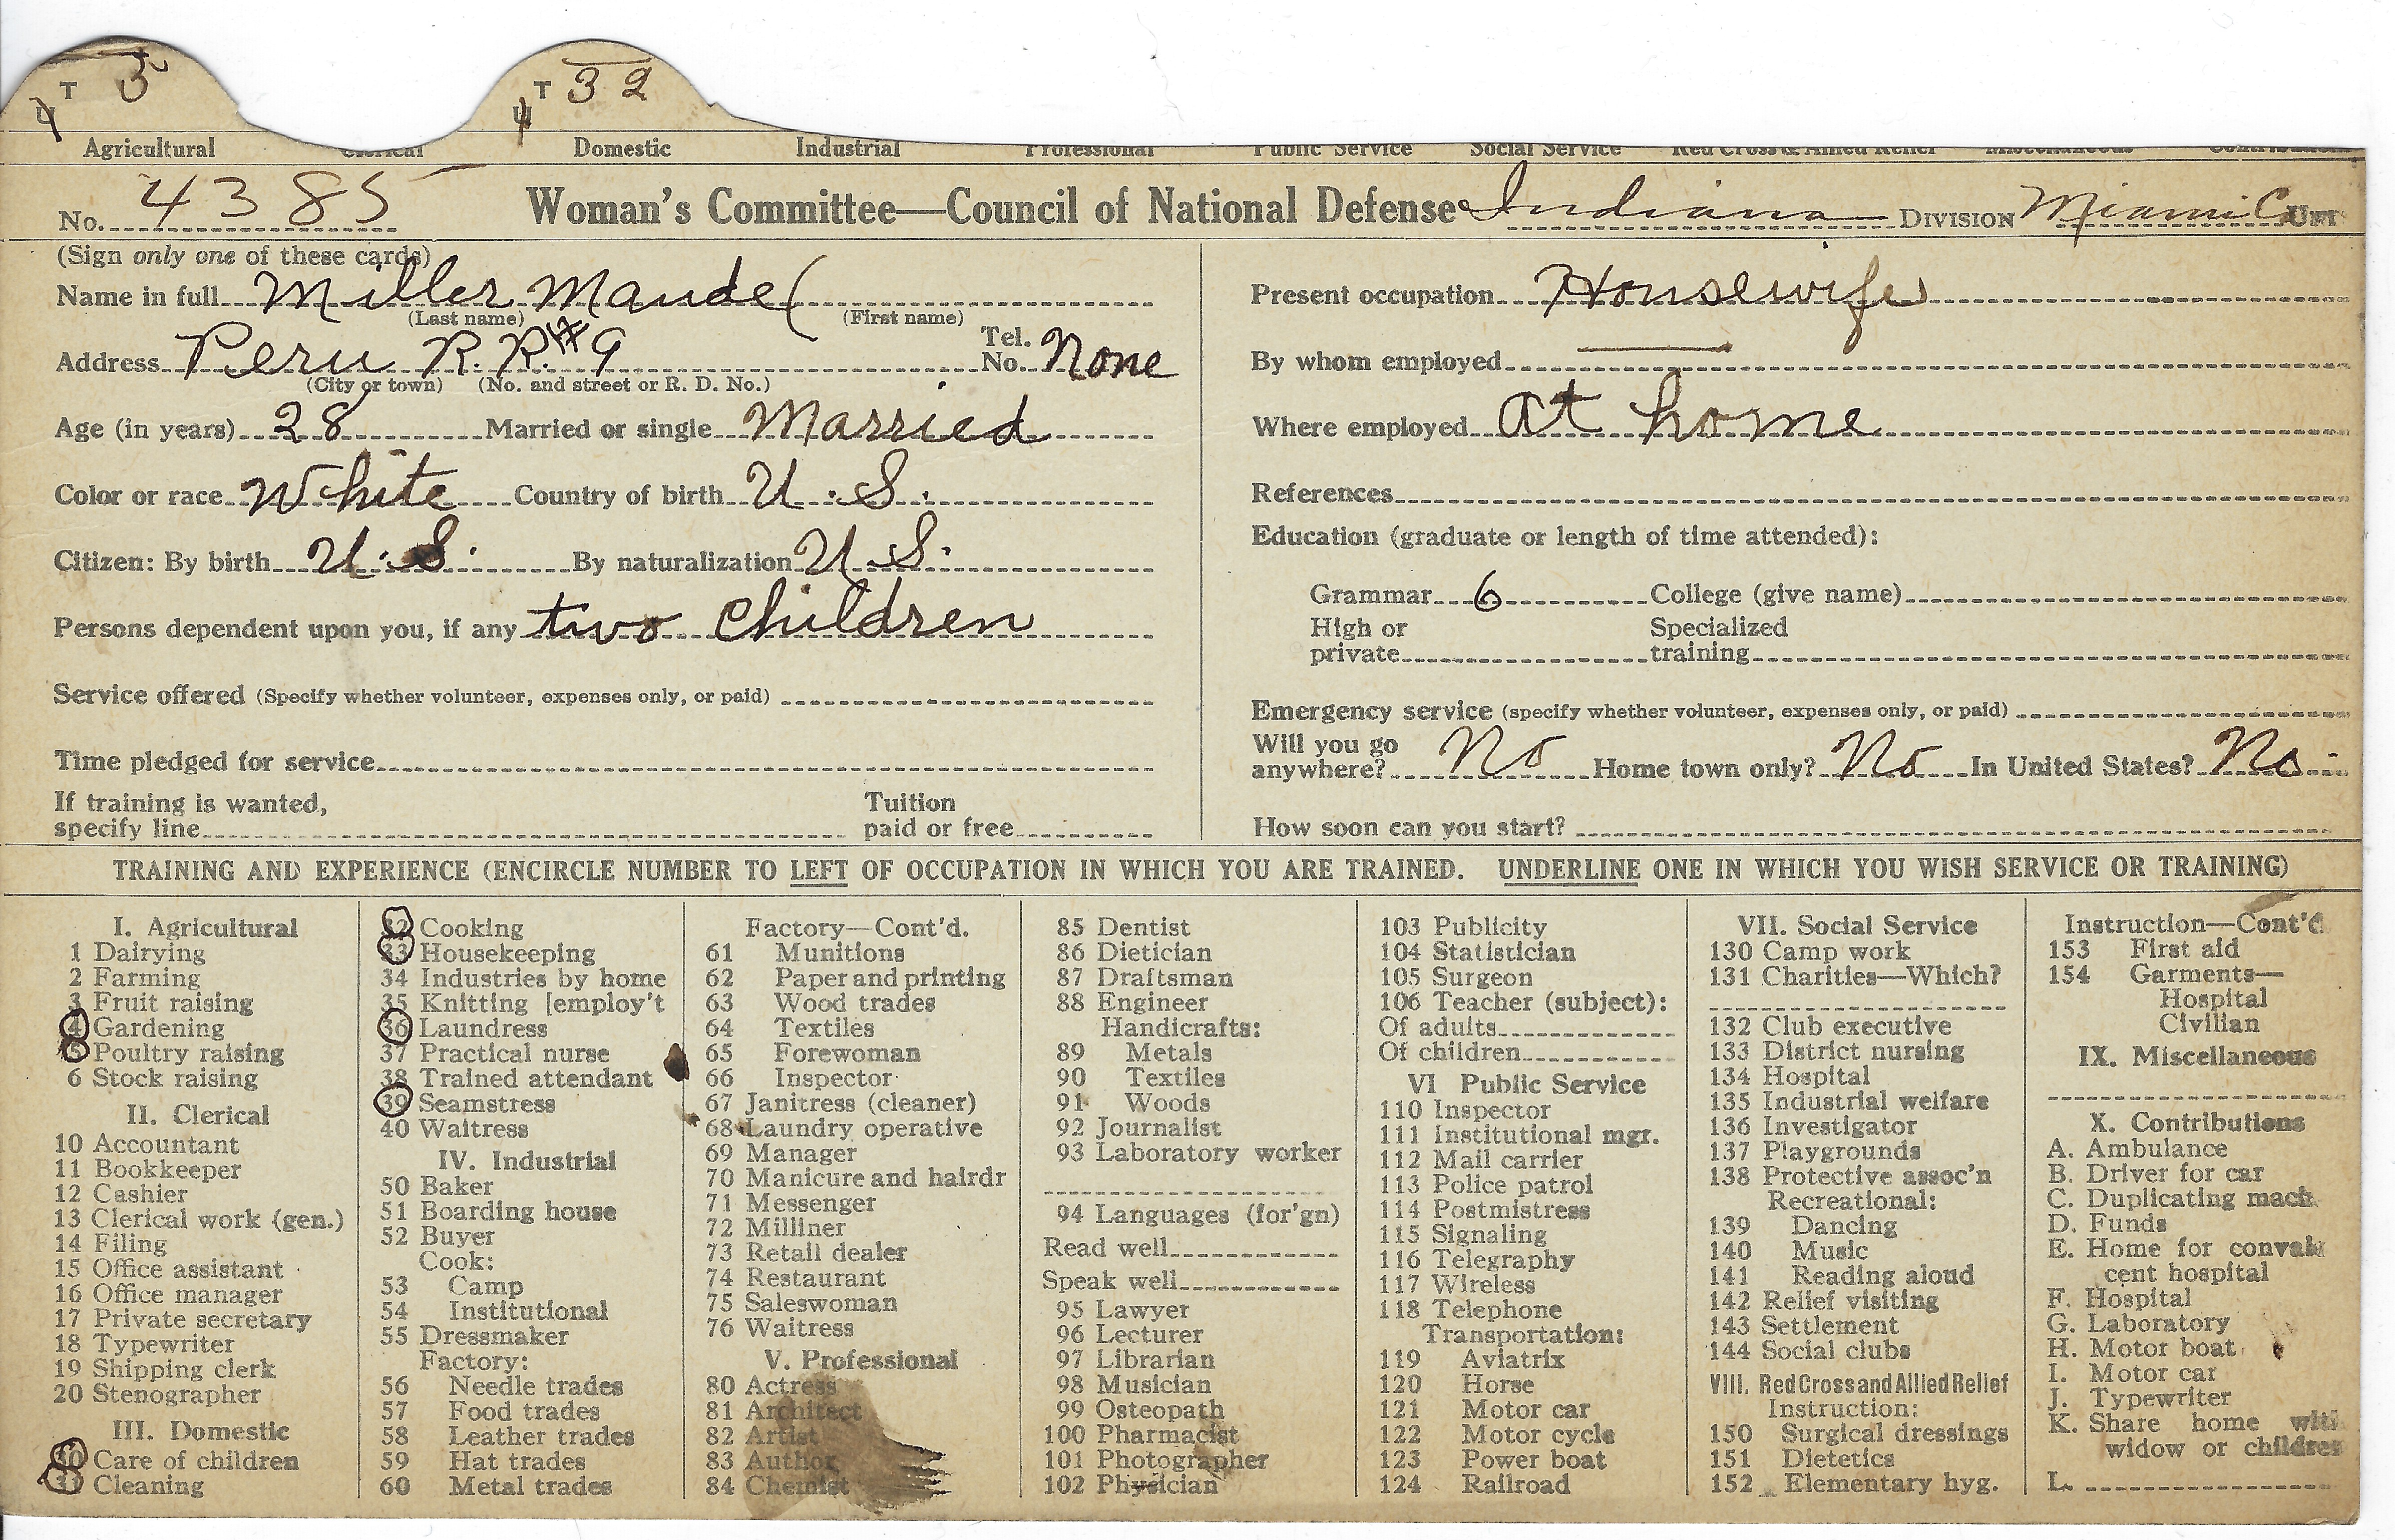 T 5
T 32
4
4
Agricultural Clerical Domestic Industrial Professional Public Service Social Service Red Cross & Allied Relief Miscellaneous
No. 4385 Woman's Committee—Council of National Defense Indiana DIVISION Miami Co UNIT
(Sign only one of these cards)
Name in full Miller Maude (
(Last name) (First name)
Address Peru R. R. # 9 Tel. No. None
(City or town) (No. and street or R. D. No.)
Age (in years) 28 Married or single Married
Color or race White Country of birth U. S.
Citizen: By birth U. S. By naturalization U. S.
Persons dependent upon you, if any two children
Service offered (Specify whether volunteer, expenses only, or paid)
Time pledged for service
If training is wanted, specify line Tuition paid or free
Present occupation Housewife
By whom employed —
Where employed At home
References
Education (graduate or length of time attended):
Grammar 6 College (give name)
High or private Specialized training
Emergency service (specify whether volunteer, expenses only, or paid)
Will you go anywhere? No Home town only? No In United States? No
How soon can you start?
TRAINING AND EXPERIENCE (ENCIRCLE NUMBER TO LEFT OF OCCUPATION IN WHICH YOU ARE TRAINED. UNDERLINE ONE IN WHICH YOU WISH SERVICE OR TRAINING)
I. Agricultural
1 Dairying
2 Farming
3 Fruit raising
4 Gardening
5 Poultry raising
6 Stock raising
II. Clerical
10 Accountant
11 Bookkeeper
12 Cashier
13 Clerical work (gen.)
14 Filing
15 Office assistant
16 Office manager
17 Private secretary
18 Typewriter
19 Shipping clerk
20 Stenographer
III. Domestic
30 Care of children
31 Cleaning
32 Cooking
33 Housekeeping
34 Industries by home
35 Knitting [employ't
36 Laundress
37 Practical nurse
38 Trained attendant
39 Seamstress
40 Waitress
IV. Industrial
50 Baker
51 Boarding house
52 Buyer
Cook:
53 Camp
54 Institutional
55 Dressmaker
Factory:
56 Needle trades
57 Food trades
58 Leather trades
59 Hat trades
60 Metal trades
Factory—Cont'd.
61 Munitions
62 Paper and printing
63 Wood trades
64 Textiles
65 Forewoman
66 Inspector
67 Janitress (cleaner)
68 Laundry operative
69 Manager
70 Manicure and hairdr
71 Messenger
72 Milliner
73 Retail dealer
74 Restaurant
75 Saleswoman
76 Waitress
V. Professional
80 Actress
81 Architect
82 Artist
83 Author
84 Chemist
85 Dentist
86 Dietician
87 Draftsman
88 Engineer
Handicrafts:
89 Metals
90 Textiles
91 Woods
92 Journalist
93 Laboratory worker
94 Languages (for'gn)
Read well
Speak well
95 Lawyer
96 Lecturer
97 Librarian
98 Musician
99 Osteopath
100 Pharmacist
101 Photographer
102 Physician
103 Publicity
104 Statistician
105 Surgeon
106 Teacher (subject):
Of adults
Of children
VI Public Service
110 Inspector
111 Institutional mgr.
112 Mail carrier
113 Police patrol
114 Postmistress
115 Signaling
116 Telegraphy
117 Wireless
118 Telephone
Transportation:
119 Aviatrix
120 Horse
121 Motor car
122 Motor cycle
123 Power boat
124 Railroad
VII. Social Service
130 Camp work
131 Charities—Which?
132 Club executive
133 District nursing
134 Hospital
135 Industrial welfare
136 Investigator
137 Playgrounds
138 Protective assoc'n
Recreational:
139 Dancing
140 Music
141 Reading aloud
142 Relief visiting
143 Settlement
144 Social clubs
VIII. Red Cross and Allied Relief
Instruction:
150 Surgical dressings
151 Dietetics
152 Elementary hyg.
Instruction—Cont'd
153 First aid
154 Garments—
Hospital
Civilian
IX. Miscellaneous
X. Contributions
A. Ambulance
B. Driver for car
C. Duplicating mach
D. Funds
E. Home for convales
cent hospital
F. Hospital
G. Laboratory
H. Motor boat
I. Motor car
J. Typewriter
K. Share home with
widow or children
L.